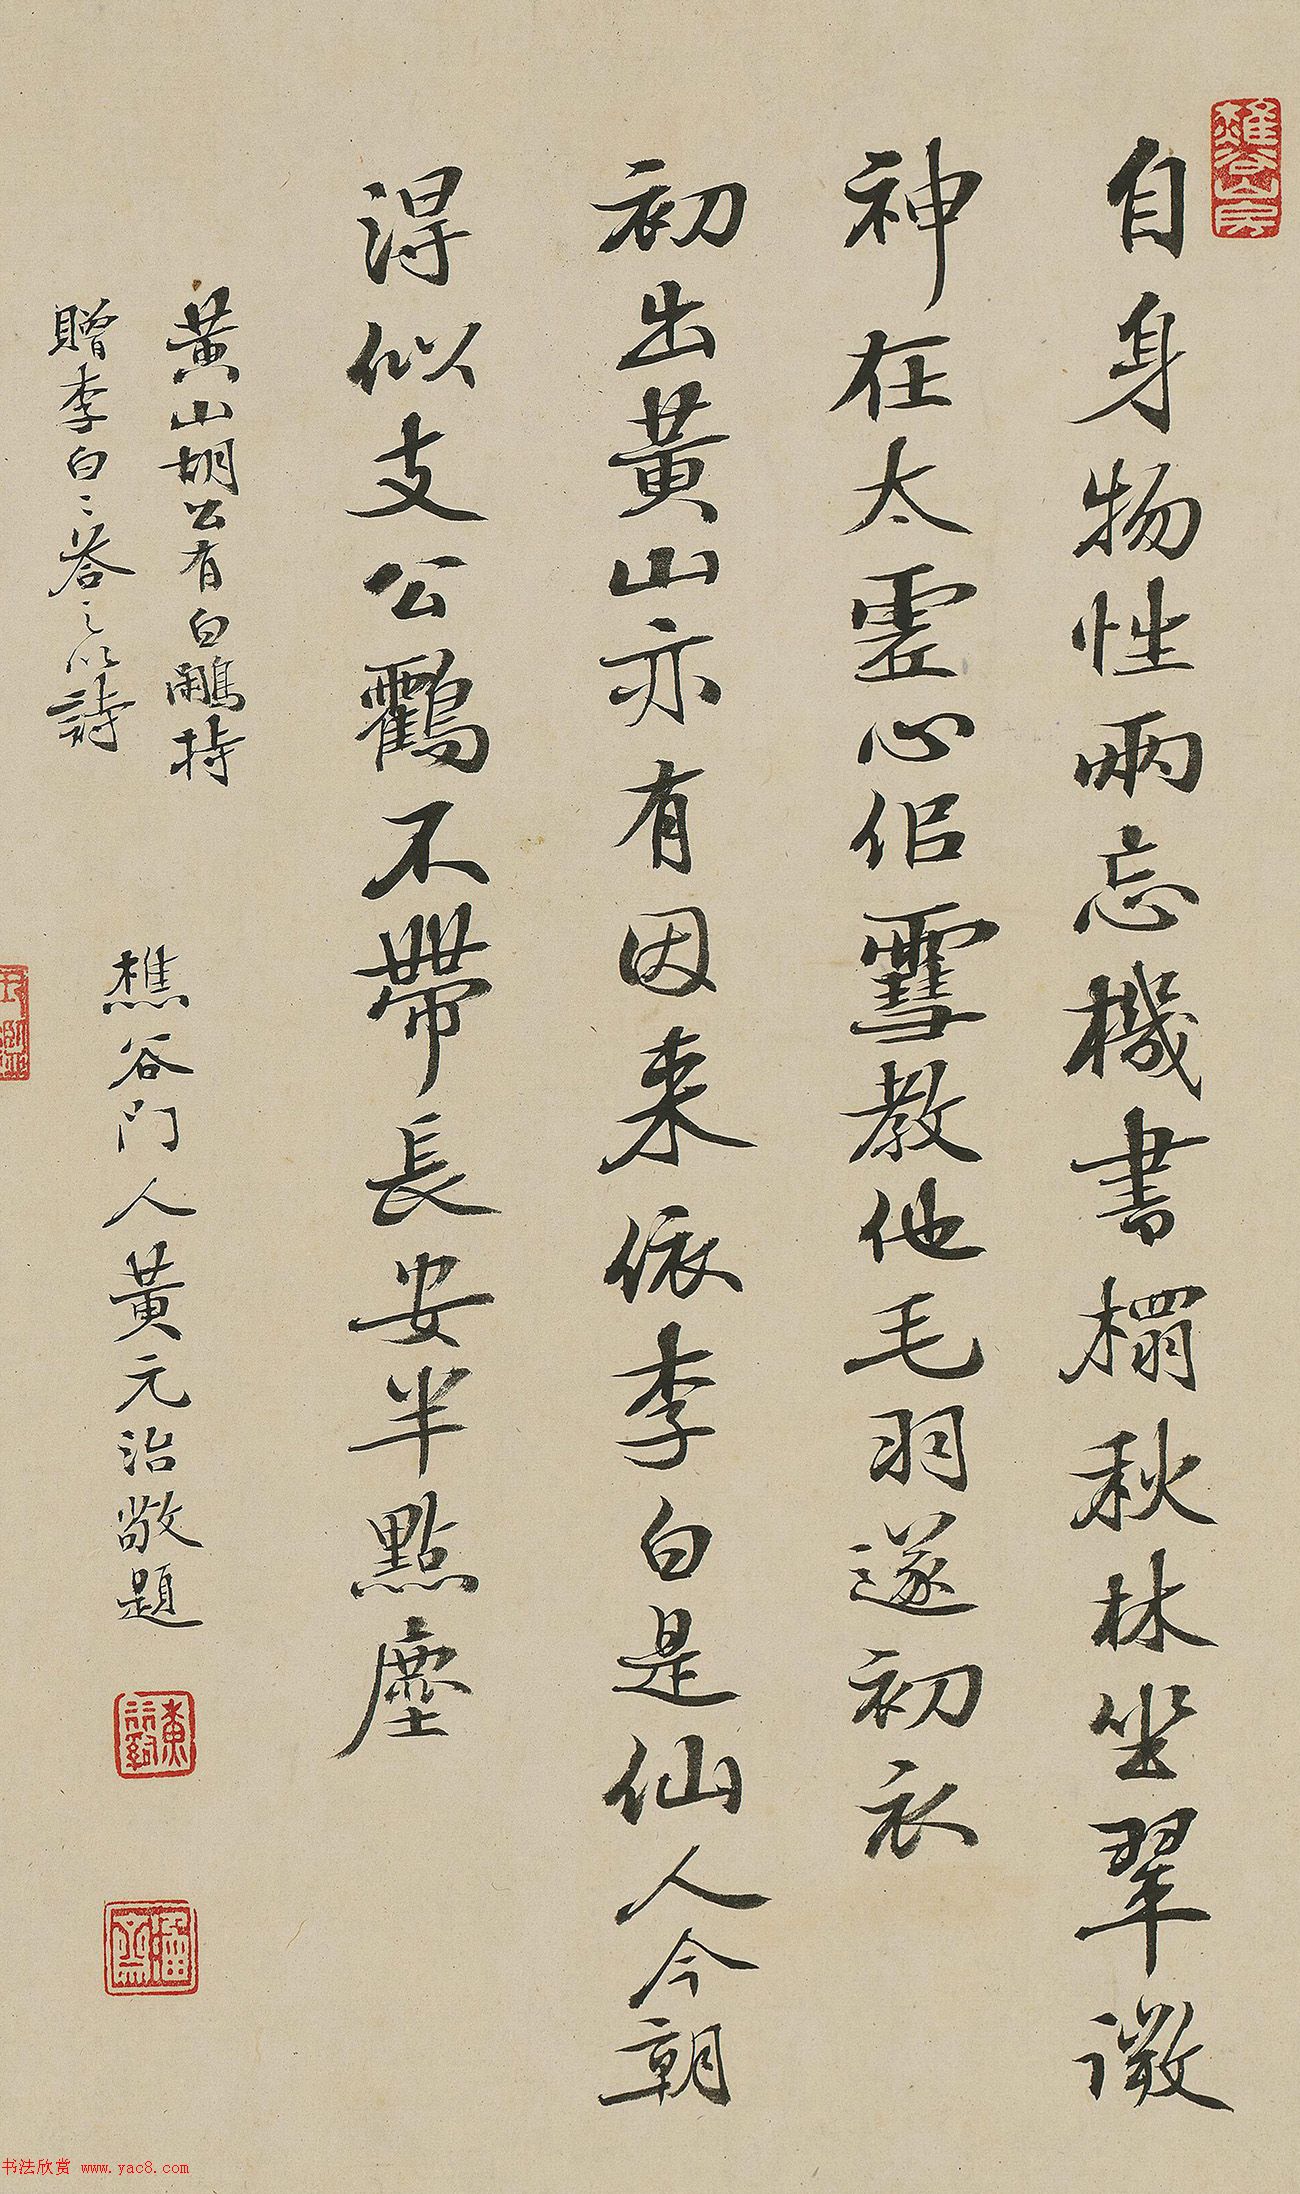 自身物性兩忘機書榻秋林坐翠微
神在太虛心侣雪教他毛羽遂初衣
初出黃山亦有因来依李白是仙人今朝
淂似支公鶴不帶長安半點塵
黃山胡公有白鷴持
贈李白〻荅之以詩
樵谷門人黃元治敬題
樵谷山房
书法欣赏 www.yac8.com